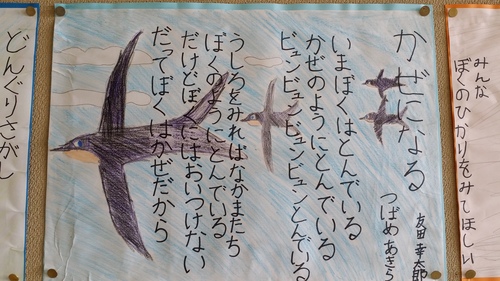 みんな
ぼくのひかりをみてほしい
かぜになる
つばめ あきら
友田 幸太郎
いまぼくはとんでいる
かぜのようにとんでいる
ビュンビュンビュンビュンとんでいる
うしろをみればなかまたち
ぼくのようにとんでいる
だけどぼくにはおいつけない
だってぼくはかぜだから
どんぐりさがし